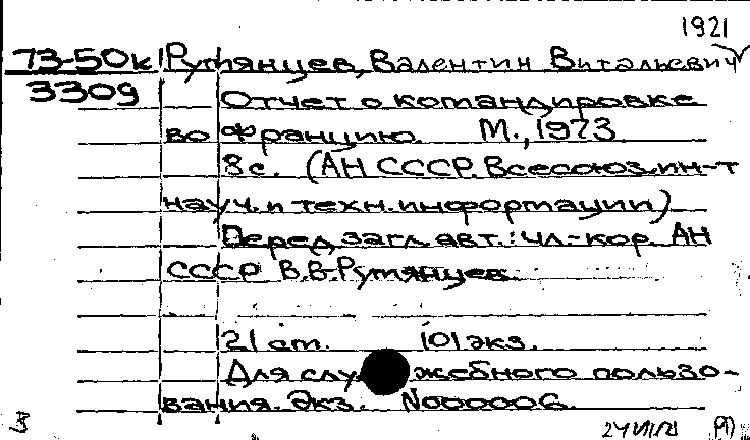 1921
73-50к Румянцев, Валентин Витальевич
3309
Отчет о командировке
во Францию. М., 1973.
8 с. (АН СССР. Всесоюз. ин-т
науч. и техн. информации)
Перед загл. авт.: чл.-кор. АН
СССР В.В. Румянцев.
21 ст. 101 экз.
Для служебного пользо-
вания. Экз. N000006.